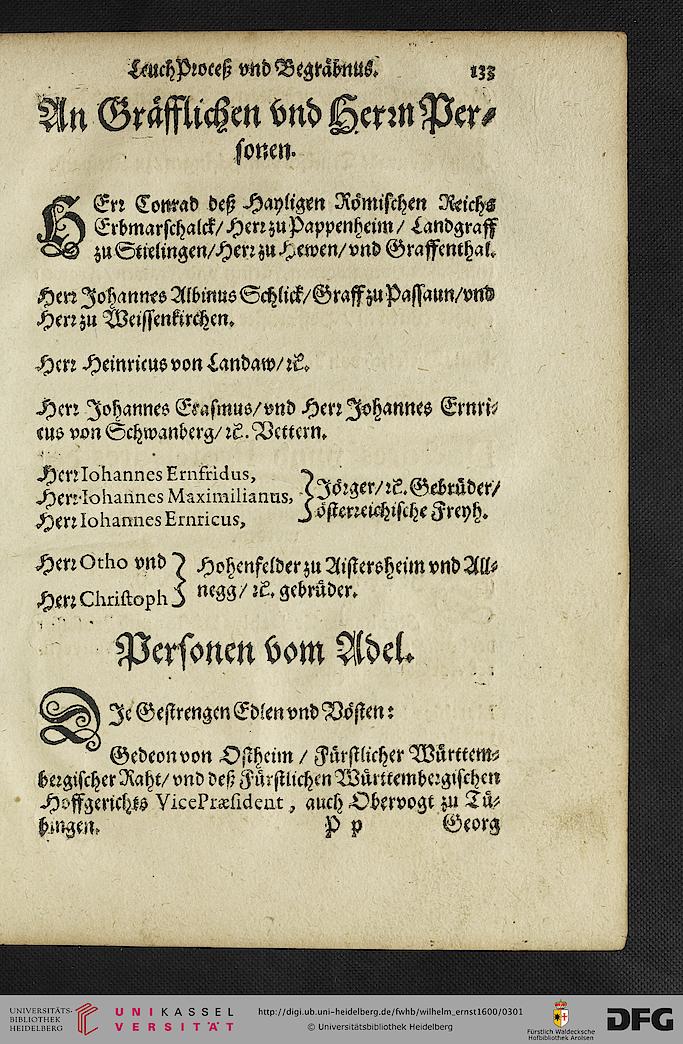 LeuchProceß vnd Begräbnus. 133
An Gräfflichen vnd Herrn Per-
sonen.
HErr Conrad deß Hayligen Römischen Reichs
Erbmarschalck/ Herr zu Pappenheim/ Landgraff
zu Stielingen/ Herr zu Hewen/ vnd Graffenthal.
Herr Johannes Albinus Schlick/ Graff zu Passaun/ vnd
Herr zu Weissenkirchen.
Herr Heinricus von Landaw/ ꝛc.
Herr Johannes Erasmus/ vnd Herr Johannes Ernri-
cus von Schwanberg/ ꝛc. Vettern.
Herr Iohannes Ernfridus,
Herr Iohannes Maximilianus,
Herr Iohannes Ernricus,
Jörger/ ꝛc. Gebrüder/
österreichische Freyh.
Herr Otho vnd
Herr Christoph
Hohenfelder zu Aistersheim vnd All-
negg/ ꝛc. gebrüder.
Personen vom Adel.
DJe Gestrengen Edlen vnd Vösten:
Gedeon von Ostheim / Fürstlicher Württem-
bergischer Raht/ vnd deß Fürstlichen Württembergischen
Hoffgerichts VicePræsident, auch Obervogt zu Tü-
bingen.
P p Georg
UNIVERSITÄTS-
BIBLIOTHEK
HEIDELBERG
UNIKASSEL
VERSITÄT
http://digi.ub.uni-heidelberg.de/fwhb/wilhelm_ernst1600/0301
© Universitätsbibliothek Heidelberg
Fürstlich Waldecksche
Hofbibliothek Arolsen
DFG